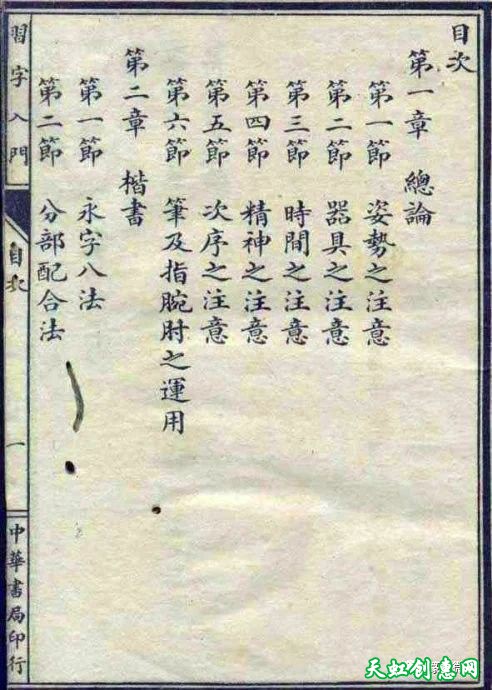 目次
第一章　總論
第一節　姿勢之注意
第二節　器具之注意
第三節　時間之注意
第四節　精神之注意
第五節　次序之注意
第六節　筆及指腕肘之運用
第二章　楷書
第一節　永字八法
第二節　分部配合法
習字入門
目次
一
中華書局印行
天虹创意网